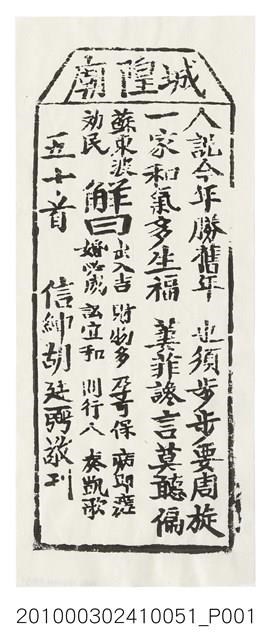 城隍廟
人說今年勝舊年　也須步步要周旋
一家和氣多生福　萋菲讒言莫聽偏
蘇東波　解曰　出入吉　財物多　尽可保　病即痊
効民　婚必成　訟宜和　問行人　奏凱歌
五十首　信紳胡廷聘敬刊
201000302410051_P001